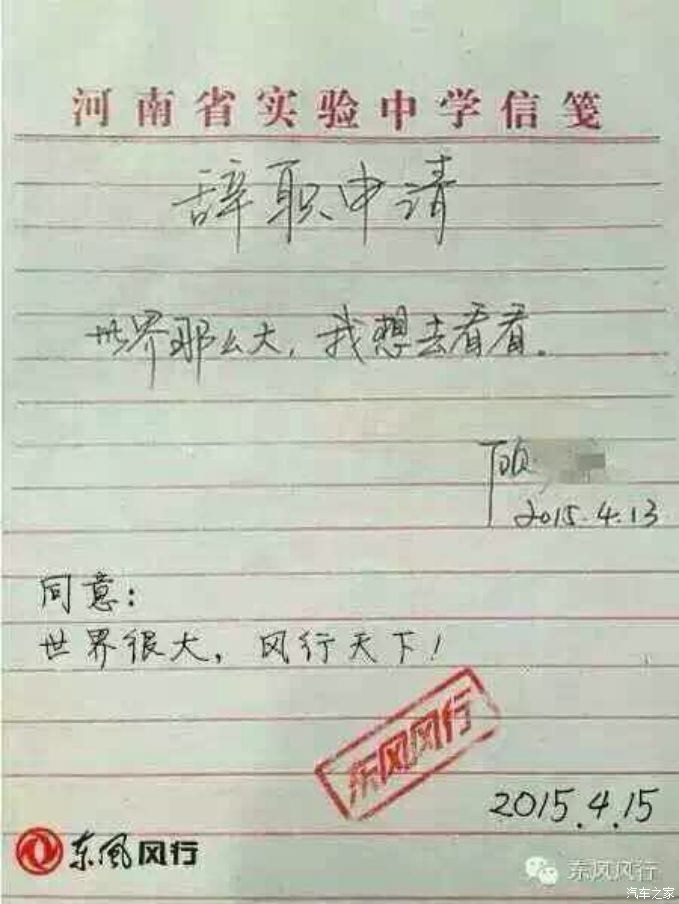 河南省实验中学信笺
辞职申请
世界那么大，我想去看看。
顾
2015.4.13
同意：
世界很大，风行天下！
东风风行
2015.4.15
东风风行
东风风行
汽车之家